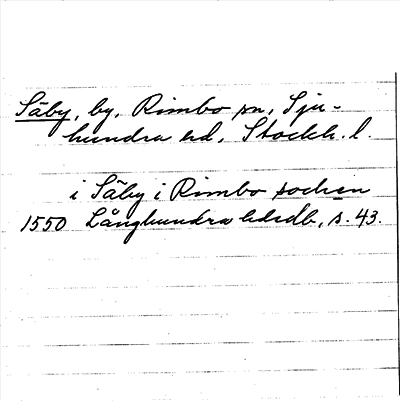 Säby, by, Rimbo sn, Sju-
hundra hd, Stockh. l.
i Säby i Rimbo sochen
1550 Långhundra hdsdb, s. 43.